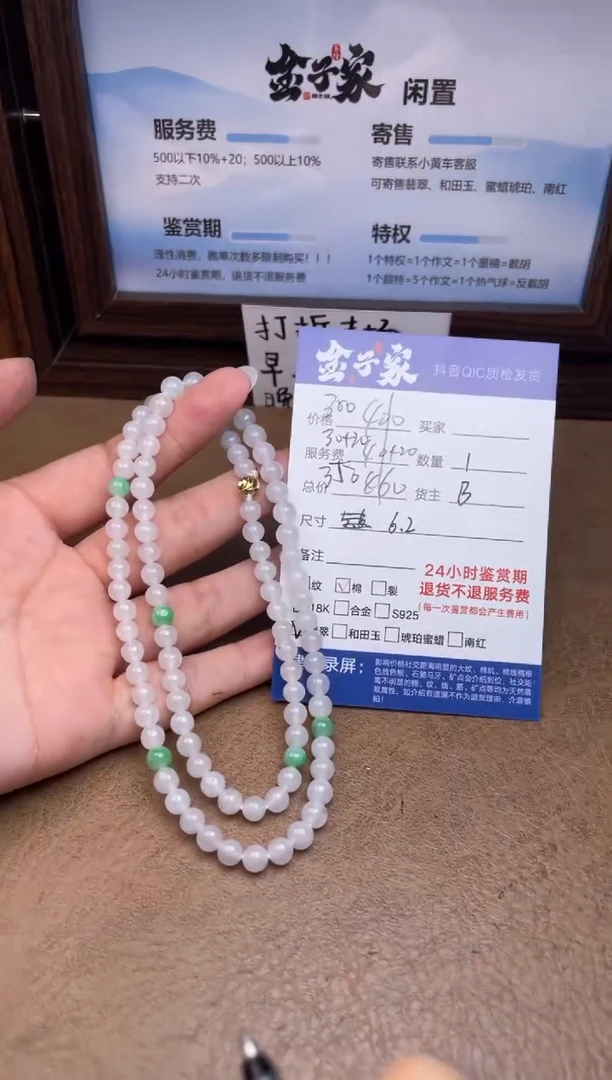 金子家 闲置
服务费
500以下10%+20；500以上10%
支持二次
寄售
寄售联系小黄车客服
可寄售翡翠、和田玉、蜜蜡琥珀、南红
鉴赏期
理性消费、跑单次数多限制购买！！！
24小时鉴赏期，退货不退服务费
特权
1个特权=1个作文=1个墨镜=截胡
1个超特=5个作文=1个热气球=反截胡
打折
早
晚
金子家 抖音QIC质检发货
价格 300 400 买家
服务费 30+20 40+20 数量 1
总价 350 460 货主 B
尺寸 6.2
备注
24小时鉴赏期
退货不退服务费
(每一次鉴赏都会产生费用)
纹 棉 裂
18K 合金 S925
翠 和田玉 琥珀蜜蜡 南红
录屏；
影响价格社交距离明显的大纹、棉坑、棉线棉根